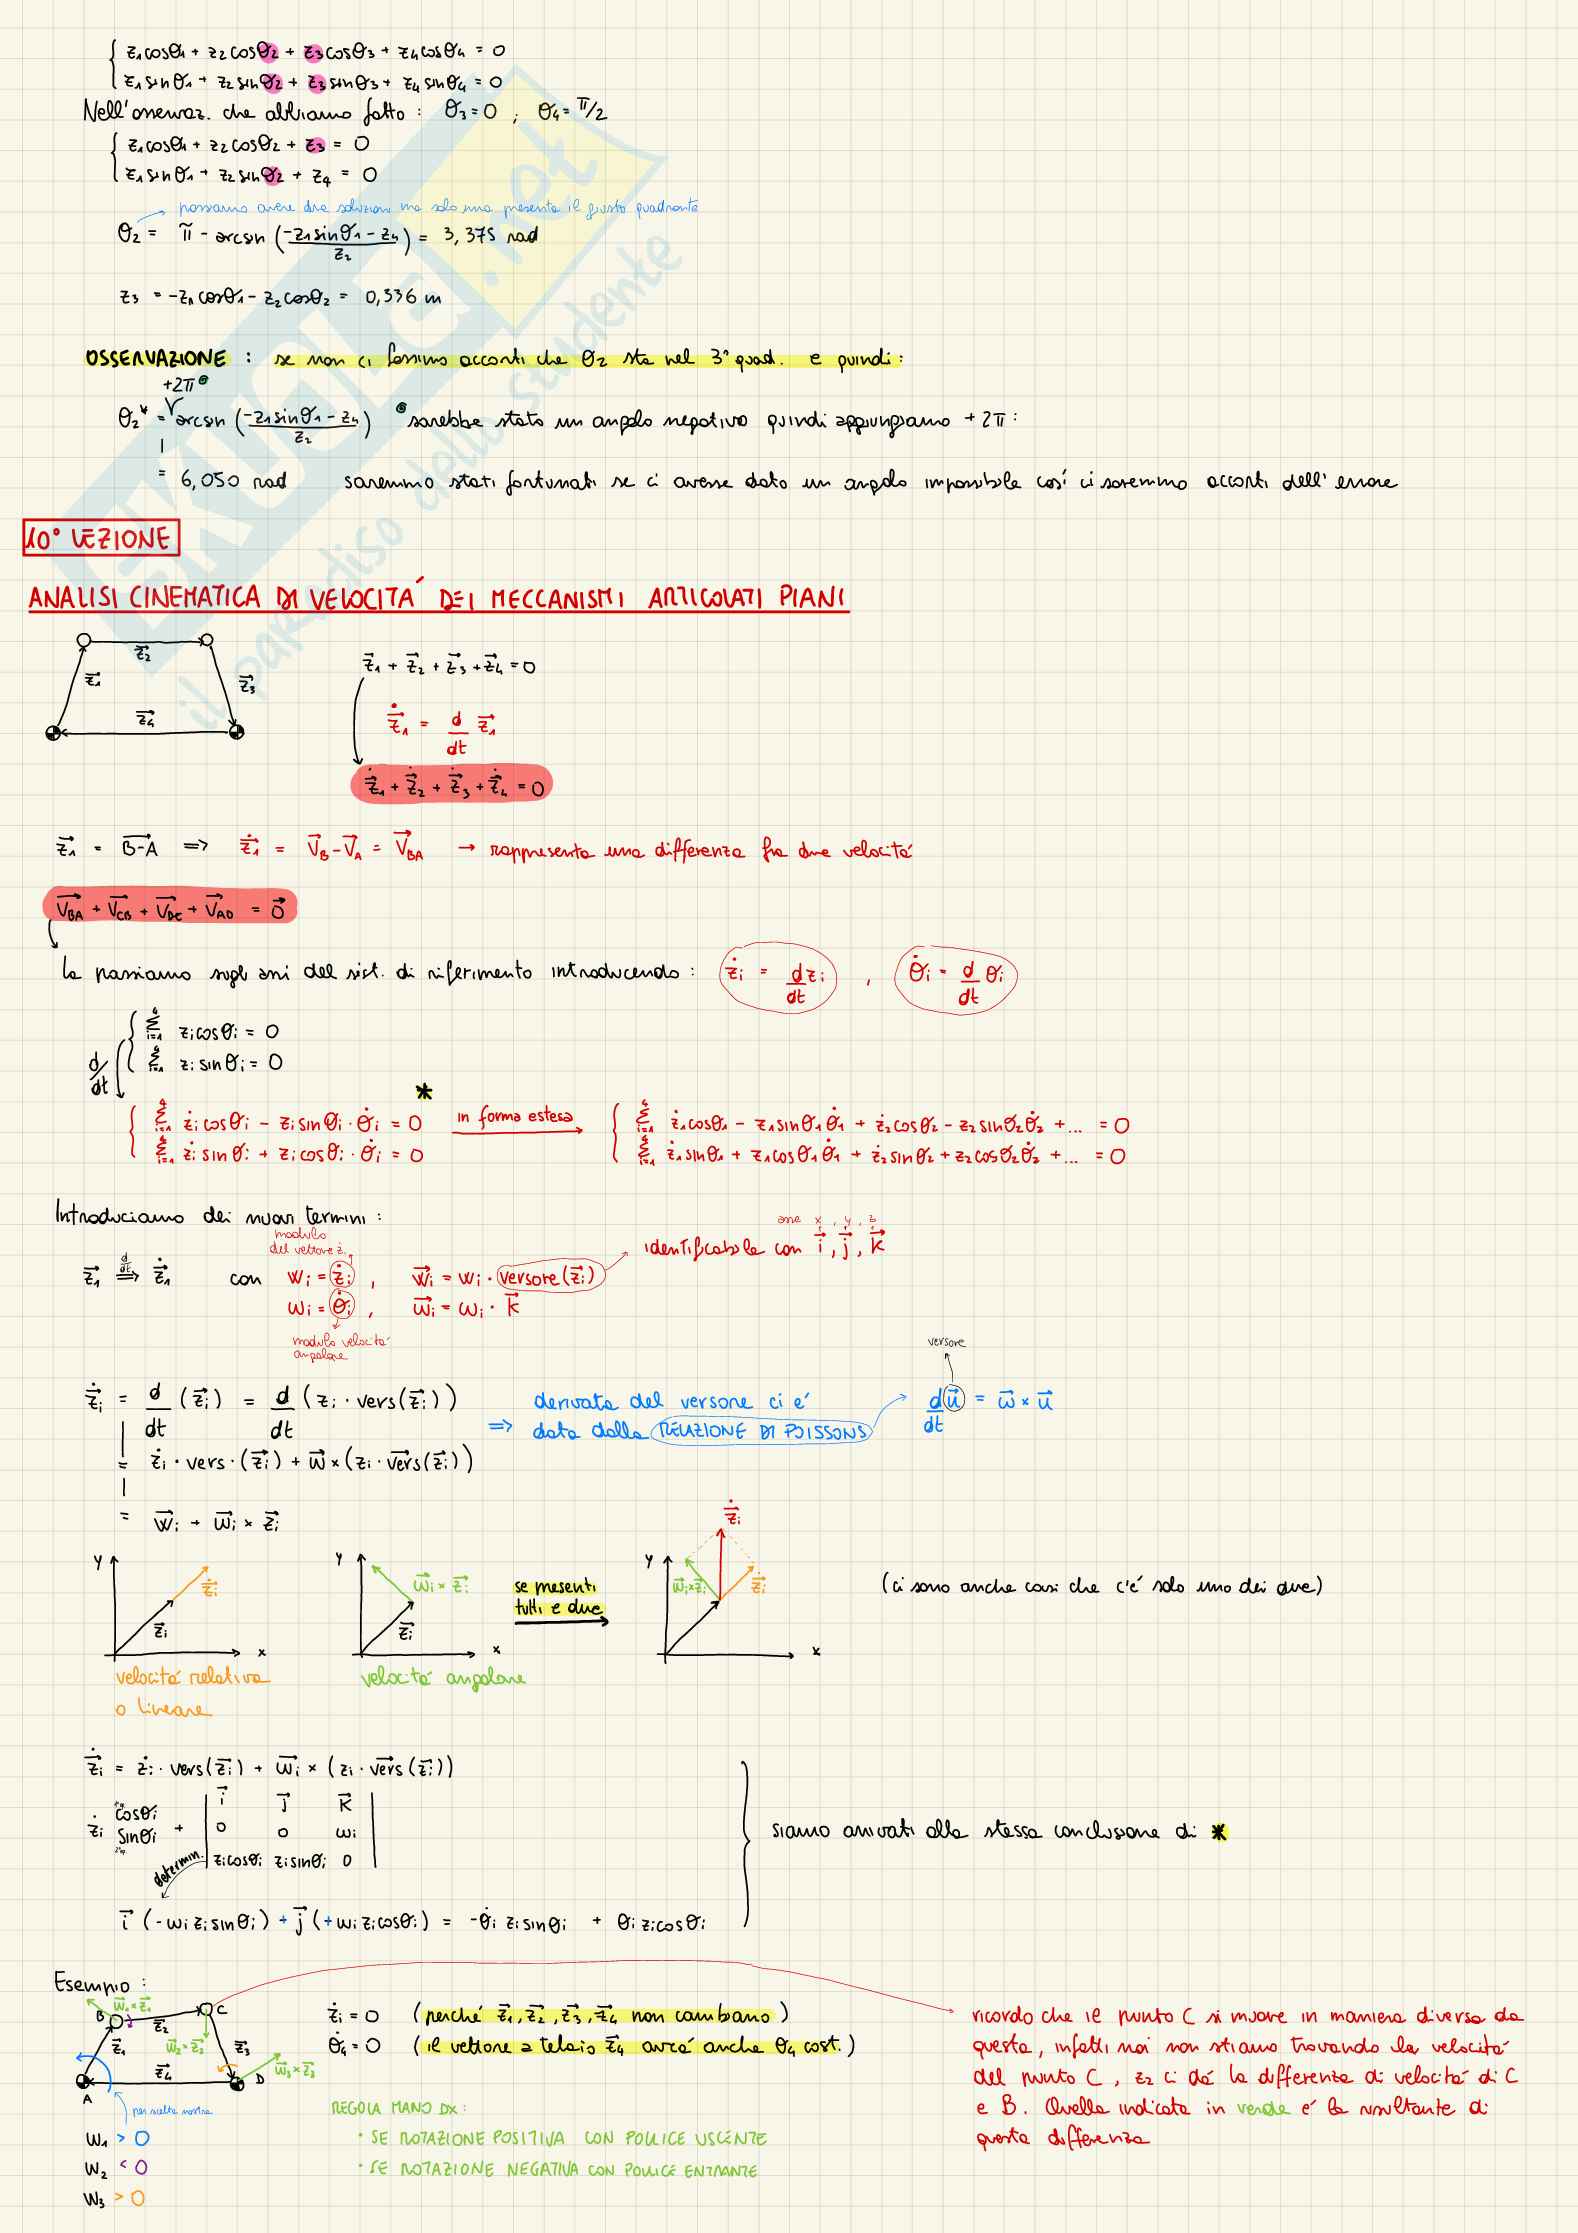 z₁cosθ₁ + z₂cosθ₂ + z₃cosθ₃ + z₄cosθ₄ = 0
z₁sinθ₁ + z₂sinθ₂ + z₃sinθ₃ + z₄sinθ₄ = 0
Nell'osservaz. che abbiamo fatto : θ₃=0 ; θ₄=π/2
z₁cosθ₁ + z₂cosθ₂ + z₃ = 0
z₁sinθ₁ + z₂sinθ₂ + z₄ = 0
possiamo avere due soluzioni ma solo una presenta il giusto quadrante
θ₂ = π - arcsin (-z₁sinθ₁ - z₄ / z₂) = 3,375 rad
z₃ = -z₁cosθ₁ - z₂cosθ₂ = 0,336 m
OSSERVAZIONE : se non ci fossimo accorti che θ₂ sta nel 3° quad. e quindi :
+2π
θ₂* = arcsin (-z₁sinθ₁ - z₄ / z₂) sarebbe stato un angolo negativo quindi aggiungiamo +2π :
= 6,050 rad saremmo stati fortunati se ci avesse dato un angolo impossibile così ci saremmo accorti dell'errore
10° LEZIONE
ANALISI CINEMATICA DI VELOCITÀ DEI MECCANISMI ARTICOLATI PIANI
z⃗₂
z⃗₁ z⃗₃
z⃗₄
z⃗₁ + z⃗₂ + z⃗₃ + z⃗₄ = 0
ż⃗₁ = d/dt z⃗₁
ż⃗₁ + ż⃗₂ + ż⃗₃ + ż⃗₄ = 0
z⃗₁ = B-A => ż⃗₁ = V⃗B - V⃗A = V⃗BA → rappresenta una differenza fra due velocità
V⃗BA + V⃗CB + V⃗DC + V⃗AD = 0⃗
la passiamo sugli assi del sist. di riferimento introducendo : żi = d/dt zi , θ̇i = d/dt θi
Σ⁴i=1 zi cosθi = 0
Σ⁴i=1 zi sinθi = 0
d/dt
*
Σ⁴i=1 żi cosθi - zi sinθi · θ̇i = 0 in forma estesa Σ⁴i=1 ż₁cosθ₁ - z₁sinθ₁θ̇₁ + ż₂cosθ₂ - z₂sinθ₂θ̇₂ + ... = 0
Σ⁴i=1 żi sinθi + zi cosθi · θ̇i = 0 Σ⁴i=1 ż₁sinθ₁ + z₁cosθ₁θ̇₁ + ż₂sinθ₂ + z₂cosθ₂θ̇₂ + ... = 0
Introduciamo dei nuovi termini :
modulo
del vettore ż.
assi x , y , z
identificabile con i⃗ , j⃗ , k⃗
z⃗₁ d/dt => ż⃗₁ con wi = żi , w⃗i = wi · versore(z⃗i)
ωi = θ̇i , ω⃗i = ωi · k⃗
modulo velocità
angolare
versore
ż⃗i = d/dt (z⃗i) = d/dt (zi · vers(z⃗i))
derivata del versore ci è
=> data dalla RELAZIONE DI POISSONS
d/dt u⃗ = ω⃗ × u⃗
= żi · vers · (z⃗i) + ω⃗ × (zi · vers(z⃗i))
= w⃗i + ω⃗i × z⃗i
y ż⃗i z⃗i x
velocità relativa
o lineare
y ω⃗i × z⃗i z⃗i x
velocità angolare
se presenti
tutti e due
y ż⃗i ω⃗i×z⃗i ż⃗i x
(ci sono anche casi che c'è solo uno dei due)
ż⃗i = żi · vers(z⃗i) + ω⃗i × (zi · vers(z⃗i))
żi cosθi sinθi + i⃗ j⃗ k⃗
0 0 ωi
zicosθi zisinθi 0
determin.
siamo arrivati alla stessa conclusione di *
i⃗ (-ωi zi sinθi) + j⃗ (+ωi zi cosθi) = -θ̇i zi sinθi + θi zi cosθi
Esempio :
B ω⃗₁×z⃗₁ C
z⃗₂
z⃗₁ ω⃗₂×z⃗₂ z⃗₃
z⃗₄ ω⃗₃×z⃗₃
A D
per scelta nostra
żi = 0 (perché z⃗₁, z⃗₂, z⃗₃, z⃗₄ non cambiano)
θ̇₄ = 0 (il vettore a telaio z⃗₄ avrà anche θ₄ cost.)
REGOLA MANO DX :
· SE ROTAZIONE POSITIVA CON POLLICE USCENTE
· SE ROTAZIONE NEGATIVA CON POLLICE ENTRANTE
ω₁ > 0
ω₂ < 0
ω₃ > 0
ricordo che il punto C si muove in maniera diversa da
questa, infatti noi non stiamo trovando la velocità
del punto C , z₂ ci dà la differenza di velocità di C
e B. Quella indicata in verde è la risultante di
questa differenza
SKUOLA.net
il paradiso dello studente